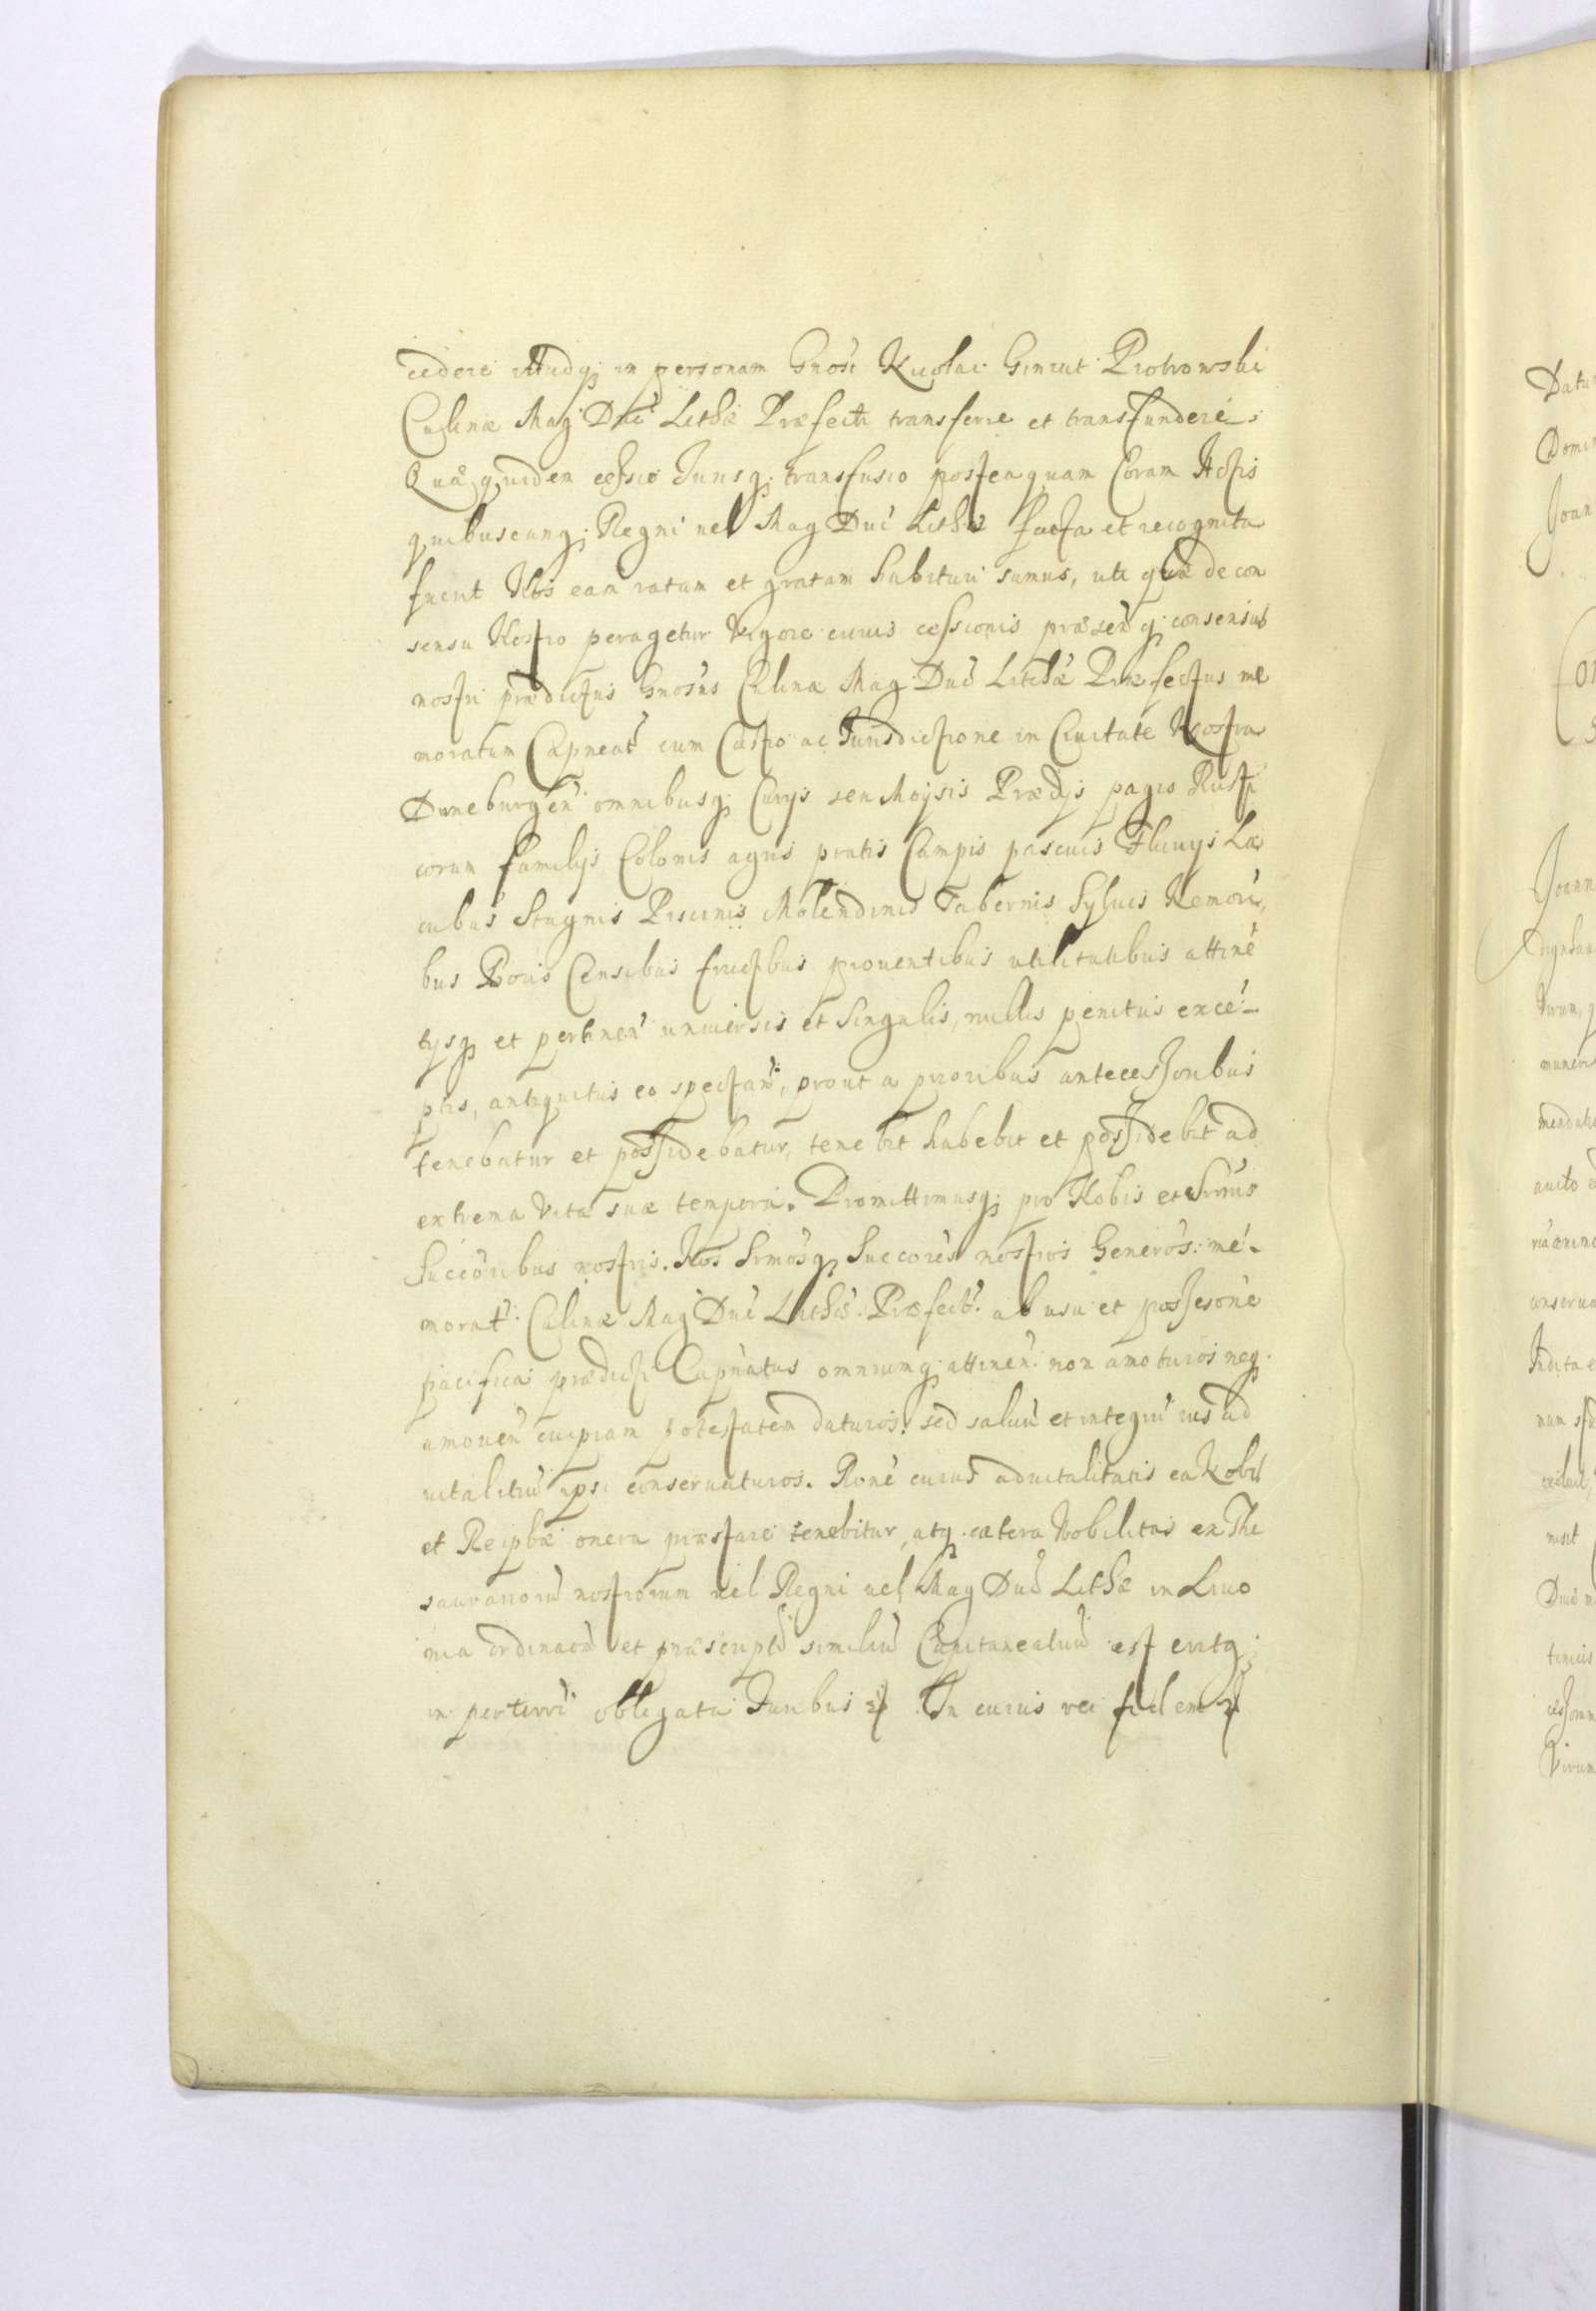 cedere illudq; in personam Gnosi Nicolai Gintut Piotrowski
Culinæ Mag Duc Lithæ Præfecti transferre et transfundere;
Quæ quidem cessio Jurisq; transfusio posteaquam Coram Actis
quibuscunq; Regni uel Mag Duc Lithæ facta et recognita
fuerit Nos eam ratam et gratam habituri sumus, uti quæ de con
sensu Nostro peragetur Vigore cuius cessionis præsen q; consensus
nostri prædictus Gnosus Culinæ Mag Duc Lithæ Præfectus me
moratum Capneat cum Castro ac Jurisdictione in Ciuitate Nostra
Duneburgen omnibusq; Curys seu Moysis Prædys pagis Rusti
corum familys Colonis agris pratis Campis pascuis Fluuys La
cubus Stagnis Piscinis Molendinis Tabernis Syluis Nemori,
bus Boris Censibus fructibus prouentibus utilitatibus attine
tysq; et pertinen uniuersis et singulis, nullis penitus exce-
ptis, antiquitus eo spectan, prout a prioribus antecessoribus
tenebatur et possidebatur, tenebit habebit et possidebit ad
extrema Vitæ suæ tempora. Promittimusq; pro Nobis et Srmis
Succoribus nostris. Nos Srmosq; Succores nostros Generos: me-
morat: Culinæ Mag Duc Lithæ Præfect: ab usu et possesone
pacifica prædicti Capnatus omniumq; attinen: non amoturos neq.
amouen cuipiam potestatem daturos: sed saluu et integru ius ad
uitalitiu ipsi conseruaturos. Rone cuius aduitalitatis ea Nobis
et Reipbæ onera præstare tenebitur, atq. cætera Nobilitas ex The
saurarioru nostrorum uel Regni uel Mag Duc Lithæ in Liuo
nia ordinaoe et præscripto similiu Capitaneatuu est eritq;
in perterri obligata Juribus In cuius rei fidem